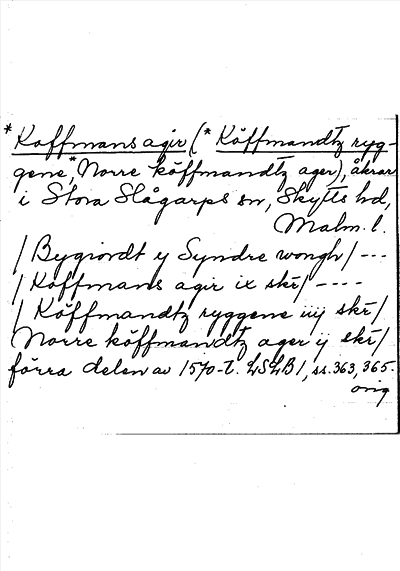 *Koffmans agir (*Köffmandtz ryg-
gene, *Norre köffmandtz ager), åkrar
i Stora Slågarps sn, Skytts hd,
Malm. l.
/Bygiordt y Syndre wongh/ ---
/Koffmans agir ix skr/ ----
/Köffmandtz ryggene iiij skr/
Norre köffmandtz ager ij skr/
förra delen av 1570-t. LSLB 1, ss. 363, 365.
orig